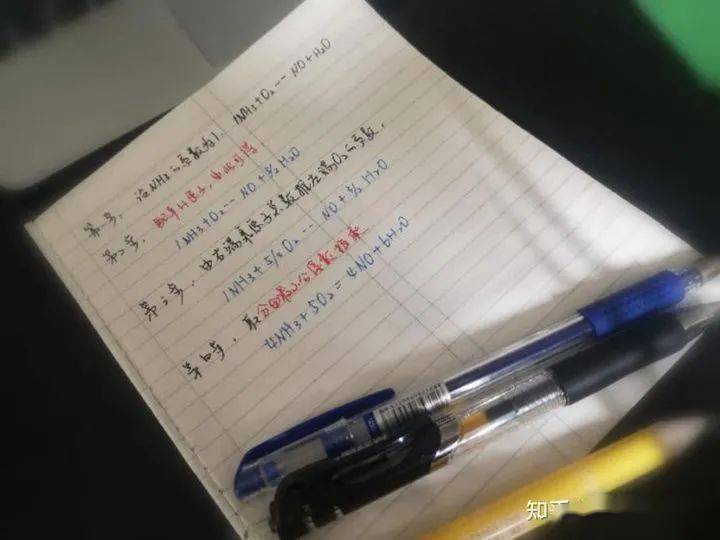 第一步, 设NH3的系数为1, 1NH3+O2--NO+H2O
第二步, 配平H原子, 由此可得
1NH3+O2--NO+3/2H2O
第三步, 由右端氧原子总数推左端O2的系数.
1NH3+5/2O2--NO+3/2H2O
第四步, 取分母最小公倍数
4NH3+5O2=4NO+6H2O
知乎